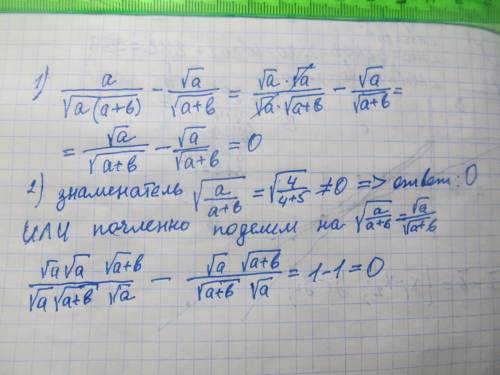 1) a/√(a(a+b)) − √a/√(a+b) = (√a · √a)/(√a · √(a+b)) − √a/√(a+b) =
= √a/√(a+b) − √a/√(a+b) = 0
2) знаменатель √(a/(a+b)) = √(4/(4+5)) ≠ 0 => ответ: 0
ИЛИ почленно поделем на √(a/(a+b)) = √a/√(a+b)
(√a √a √(a+b))/(√a √(a+b) √a) − (√a √(a+b))/(√(a+b) √a) = 1 − 1 = 0